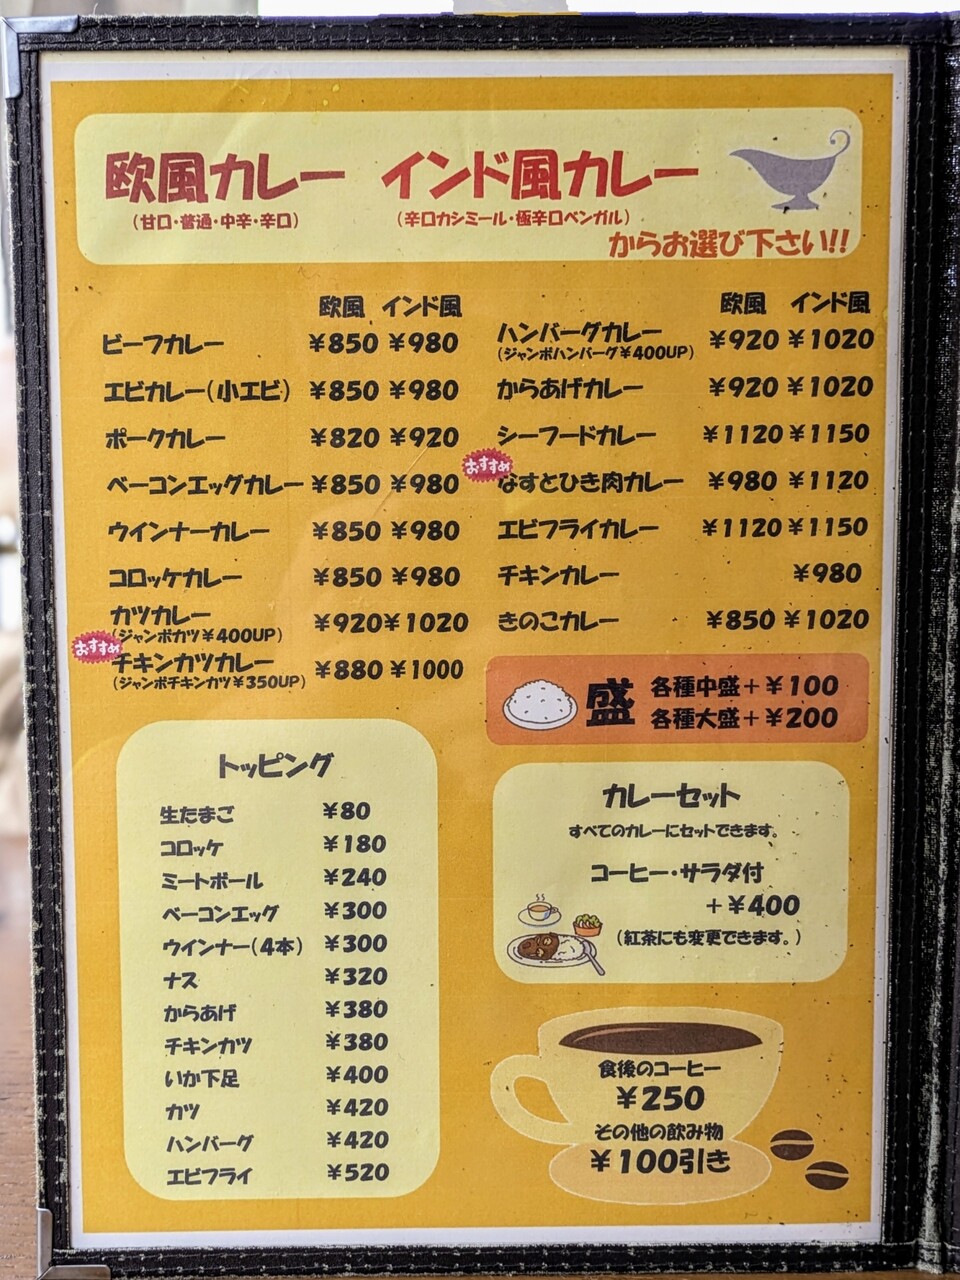 欧風カレー インド風カレー
(甘口・普通・中辛・辛口) (辛口カシミール・極辛口ベンガル)
からお選び下さい!!
欧風 インド風
ビーフカレー ¥850 ¥980
エビカレー(小エビ) ¥850 ¥980
ポークカレー ¥820 ¥920
ベーコンエッグカレー ¥850 ¥980
ウインナーカレー ¥850 ¥980
コロッケカレー ¥850 ¥980
カツカレー ¥920 ¥1020
(ジャンボカツ¥400UP)
おすすめ
チキンカツカレー ¥880 ¥1000
(ジャンボチキンカツ¥350UP)
欧風 インド風
ハンバーグカレー ¥920 ¥1020
(ジャンボハンバーグ¥400UP)
からあげカレー ¥920 ¥1020
シーフードカレー ¥1120 ¥1150
おすすめ
なすとひき肉カレー ¥980 ¥1120
エビフライカレー ¥1120 ¥1150
チキンカレー ¥980
きのこカレー ¥850 ¥1020
盛 各種中盛+¥100
各種大盛+¥200
トッピング
生たまご ¥80
コロッケ ¥180
ミートボール ¥240
ベーコンエッグ ¥300
ウインナー(4本) ¥300
ナス ¥320
からあげ ¥380
チキンカツ ¥380
いか下足 ¥400
カツ ¥420
ハンバーグ ¥420
エビフライ ¥520
カレーセット
すべてのカレーにセットできます。
コーヒー・サラダ付
+¥400
(紅茶にも変更できます。)
食後のコーヒー
¥250
その他の飲み物
¥100引き